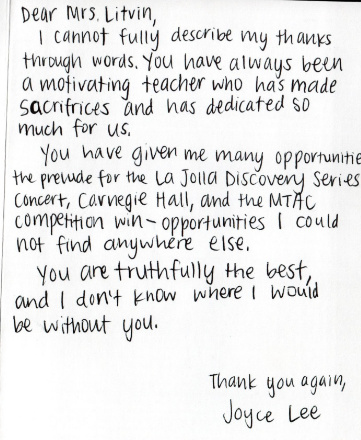 Dear Mrs. Litvin,
I cannot fully describe my thanks
through words. You have always been
a motivating teacher who has made
sacrifrices and has dedicated so
much for us.
You have given me many opportunitie
the prelude for the La Jolla Discovery Series
Concert, Carnegie Hall, and the MTAC
competition win - opportunities I could
not find anywhere else.
You are truthfully the best,
and I don't know where I would
be without you.
Thank you again,
Joyce Lee